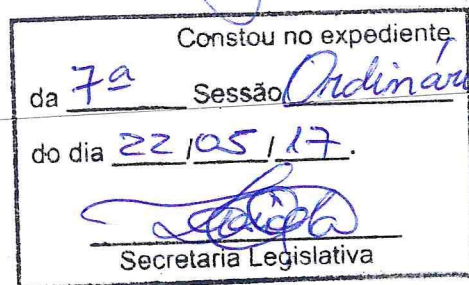 Constou no expediente
da 7ª Sessão Ordinári
do dia 22/05/17.
Secretaria Legislativa